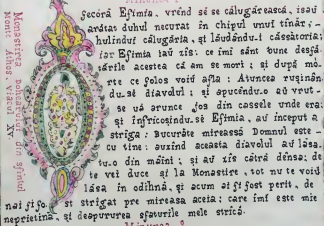 Minunea 1
Monastirea Dohiarului din sfîntul Munte Athos, viacul XV.
Secoră Efimia, vrînd să se călugărească, isau
arătat duhul necurat în chipul unui tînăr,
hulindui călugăria, și lăudîndui căssătoria;
iar Efimia iau zis: ce imi sînt bune desfă-
tările acestea că am se mori; și după mó-
rte ce folos voiu afla: Atuncea rușinăn-
du.să diavolul; și apucîndu.o au vrut.
se uă arunce jos din cassele unde era;
și înfricoșîndu.se Efimia, au început a
striga: Bucurăte mireassă Domnul este.
cu tine: auzind aceasta diavolul au lăsa.
tu.o din măini; și au zis cătră dênsa: de
te vei duce și la Monastire, tot nu te voiu
lăsa în odihnă, și acum ai fi fost perit, de
nai fi fo. st strigat pre mireasa aceia; care imi este mie
neprietină, și despururea sfaturile mele strică.
Minunea